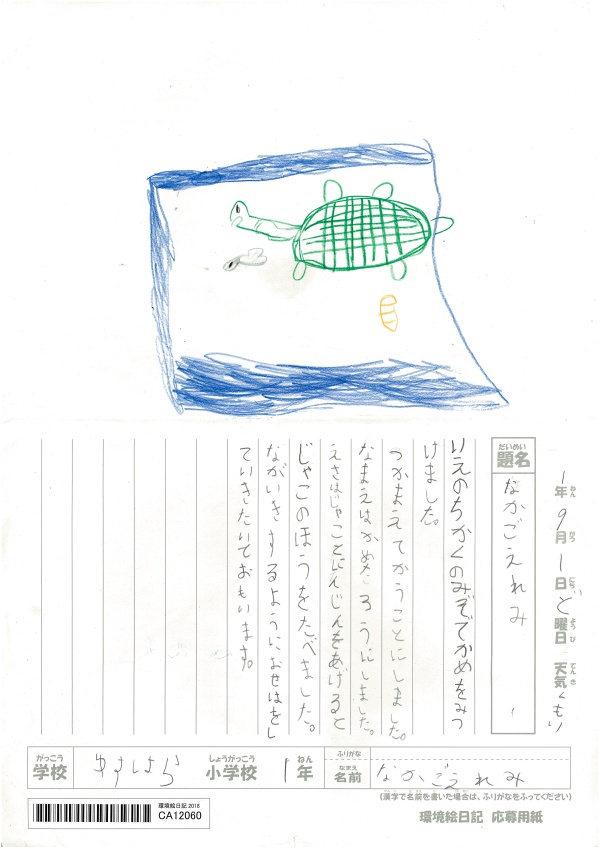 1年9月1日ど曜日 天気くもり
ねん がつ にち ようび てんき
だいめい
題名 なかごえれみ
いえのちかくのみぞでかめをみつ
けました。
つかまえてかうことにしました。
なまえはかめたろうにしました。
えさはじゃことにんじんをあげると
じゃこのほうをたべました。
ながいきするようにおせはをし
ていきたいておもいます。
がっこう しょうがっこう ねん ふりがな
学校 ゆすはら 小学校 1年 なまえ 名前 なかごえれみ
(漢字で名前を書いた場合は、ふりがなをふってください)
環境絵日記 2018
CA12060
環境絵日記 応募用紙